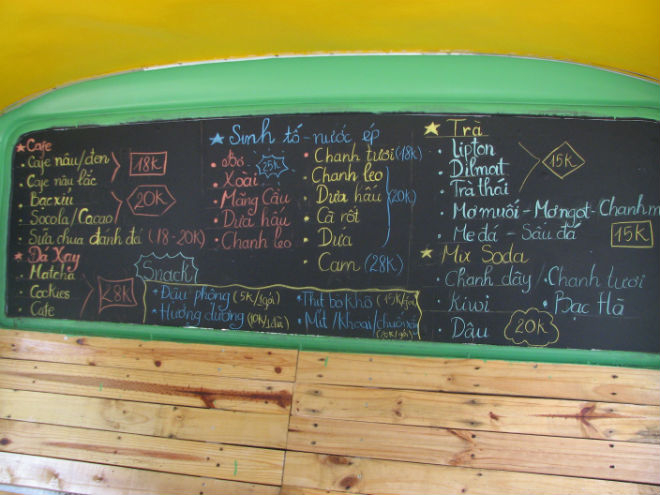 ★ Cafe
• Cafe nâu/đen
18K
• Cafe nâu lắc
• Bạc xỉu
20K
• Socola/Cacao
• Sữa chua đánh đá (18-20K)
★ Đá Xay
• Matcha
• Cookies
28K
• Cafe
★ Sinh tố - nước ép
• Bơ
25K
• Xoài
• Mãng Cầu
• Dưa hấu
• Chanh leo
• Chanh tươi (18K)
• Chanh leo
• Dưa hấu
20K
• Cà rốt
• Dứa
Cam (28K)
Snack
• Đậu phộng (5K/1gói)
• Hướng dương (10K/1đĩa)
• Thịt bò khô (15K/gói)
• Mít/Khoai/chuối
★ Trà
• Lipton
• Dilmat
15K
• Trà thái
• Mơ muối - Mơ ngọt - Chanh m
• Me đá - Sấu đá
15K
★ Mix Soda
• Chanh dây / • Chanh tươi
• Kiwi
• Bạc Hà
• Dâu
20K